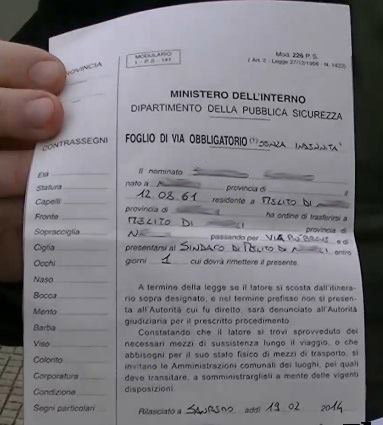 PROVINCIA
MODULARIO
I. - P.S. - 141
Mod. 226 P.S.
(Art. 2 - Legge 27/12/1956 - N. 1423)
MINISTERO DELL'INTERNO
DIPARTIMENTO DELLA PUBBLICA SICUREZZA
FOGLIO DI VIA OBBLIGATORIO (1) SENZA INDENNITÀ
Il nominato
nato a provincia di il
12.08.61 residente a MELITO DI
provincia di ha ordine di trasferirsi a
MELITO DI provincia di
N passando per VIA e di
presentarsi al SINDACO DI MELITO DI N LI, entro
giorni 1 cui dovrà rimettere il presente.
A termine della legge se il latore si scosta dall'itinera-
rio sopra designato, e nel termine prefisso non si presen-
ta all'Autorità cui fu diretto, sarà denunciato all'Autorità
giudiziaria per il prescritto procedimento.
Constatando che il latore si trovi sprovveduto dei
necessari mezzi di sussistenza lungo il viaggio, o che
abbisogni per il suo stato fisico di mezzi di trasporto, si
invitano le Amministrazioni comunali dei luoghi, per quali
deve transitare, a somministrarglieli a mente delle vigenti
disposizioni.
Rilasciato a SANREMO addì 19 02 2014
CONTRASSEGNI
Età
Statura
Capelli
Fronte
Sopracciglia
Ciglia
Occhi
Naso
Bocca
Mento
Barba
Viso
Colorito
Corporatura
Condizione
Segni particolari